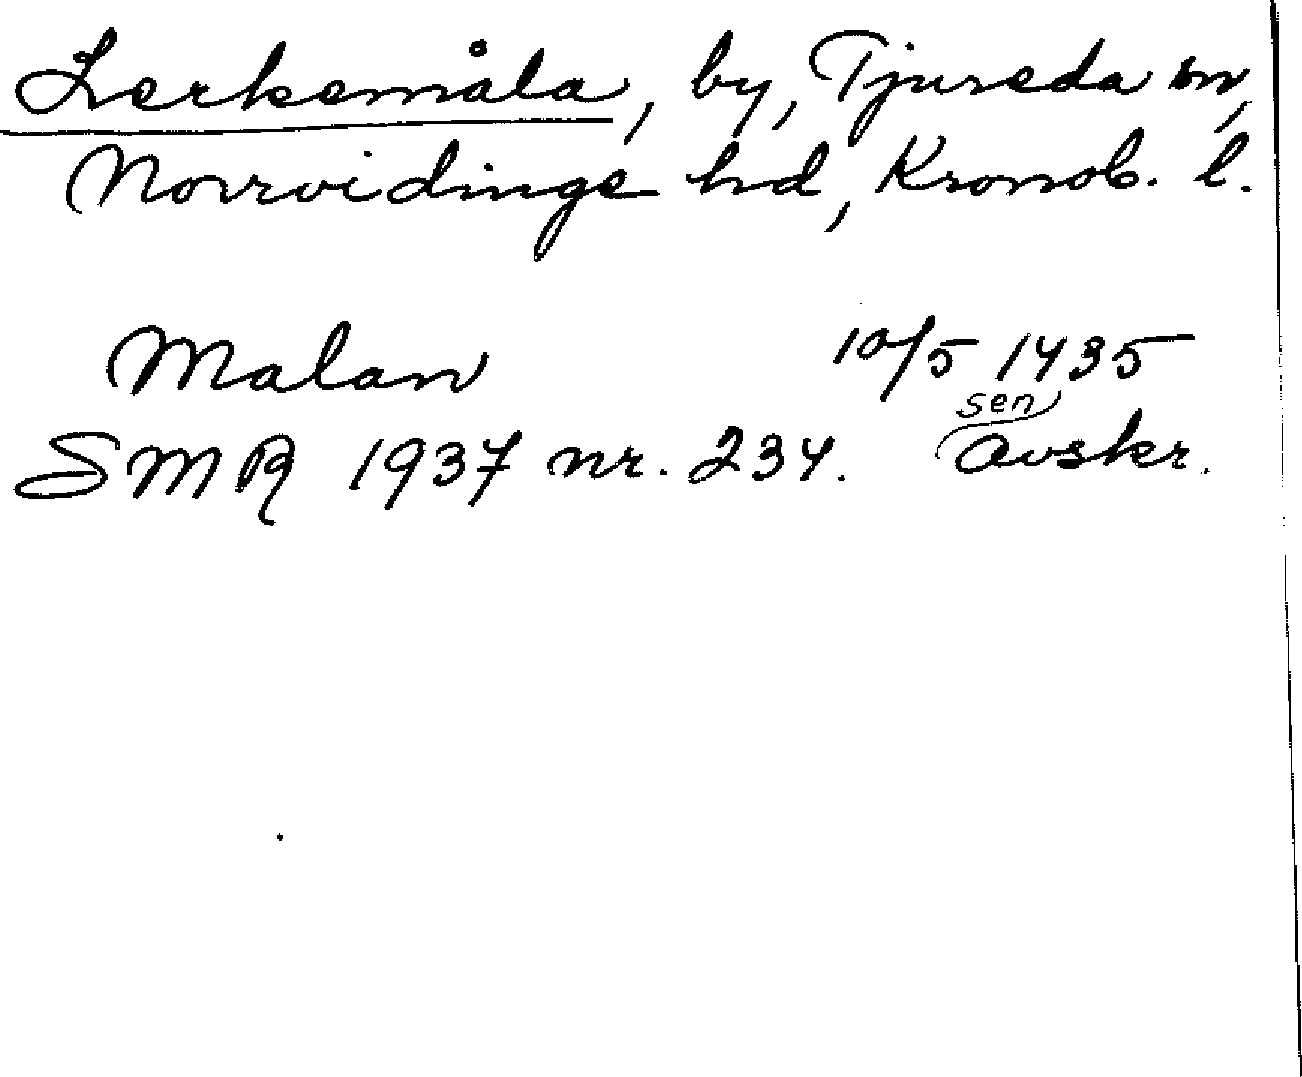 Lerkemåla, by, Tjureda sn,
Norrvidinge hd, Kronob. l.
Malan 10/5 1435
SMR 1937 nr. 234. sen avskr.